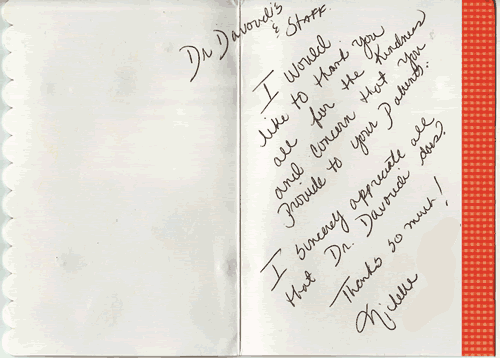 Dr Davoudi's
& Staff
I Would
like to thank you
all for the Kindness
and concern that you
Provide to your Patients.
I sincerely appreciate all
that Dr. Davoudi does!
Thanks so much!